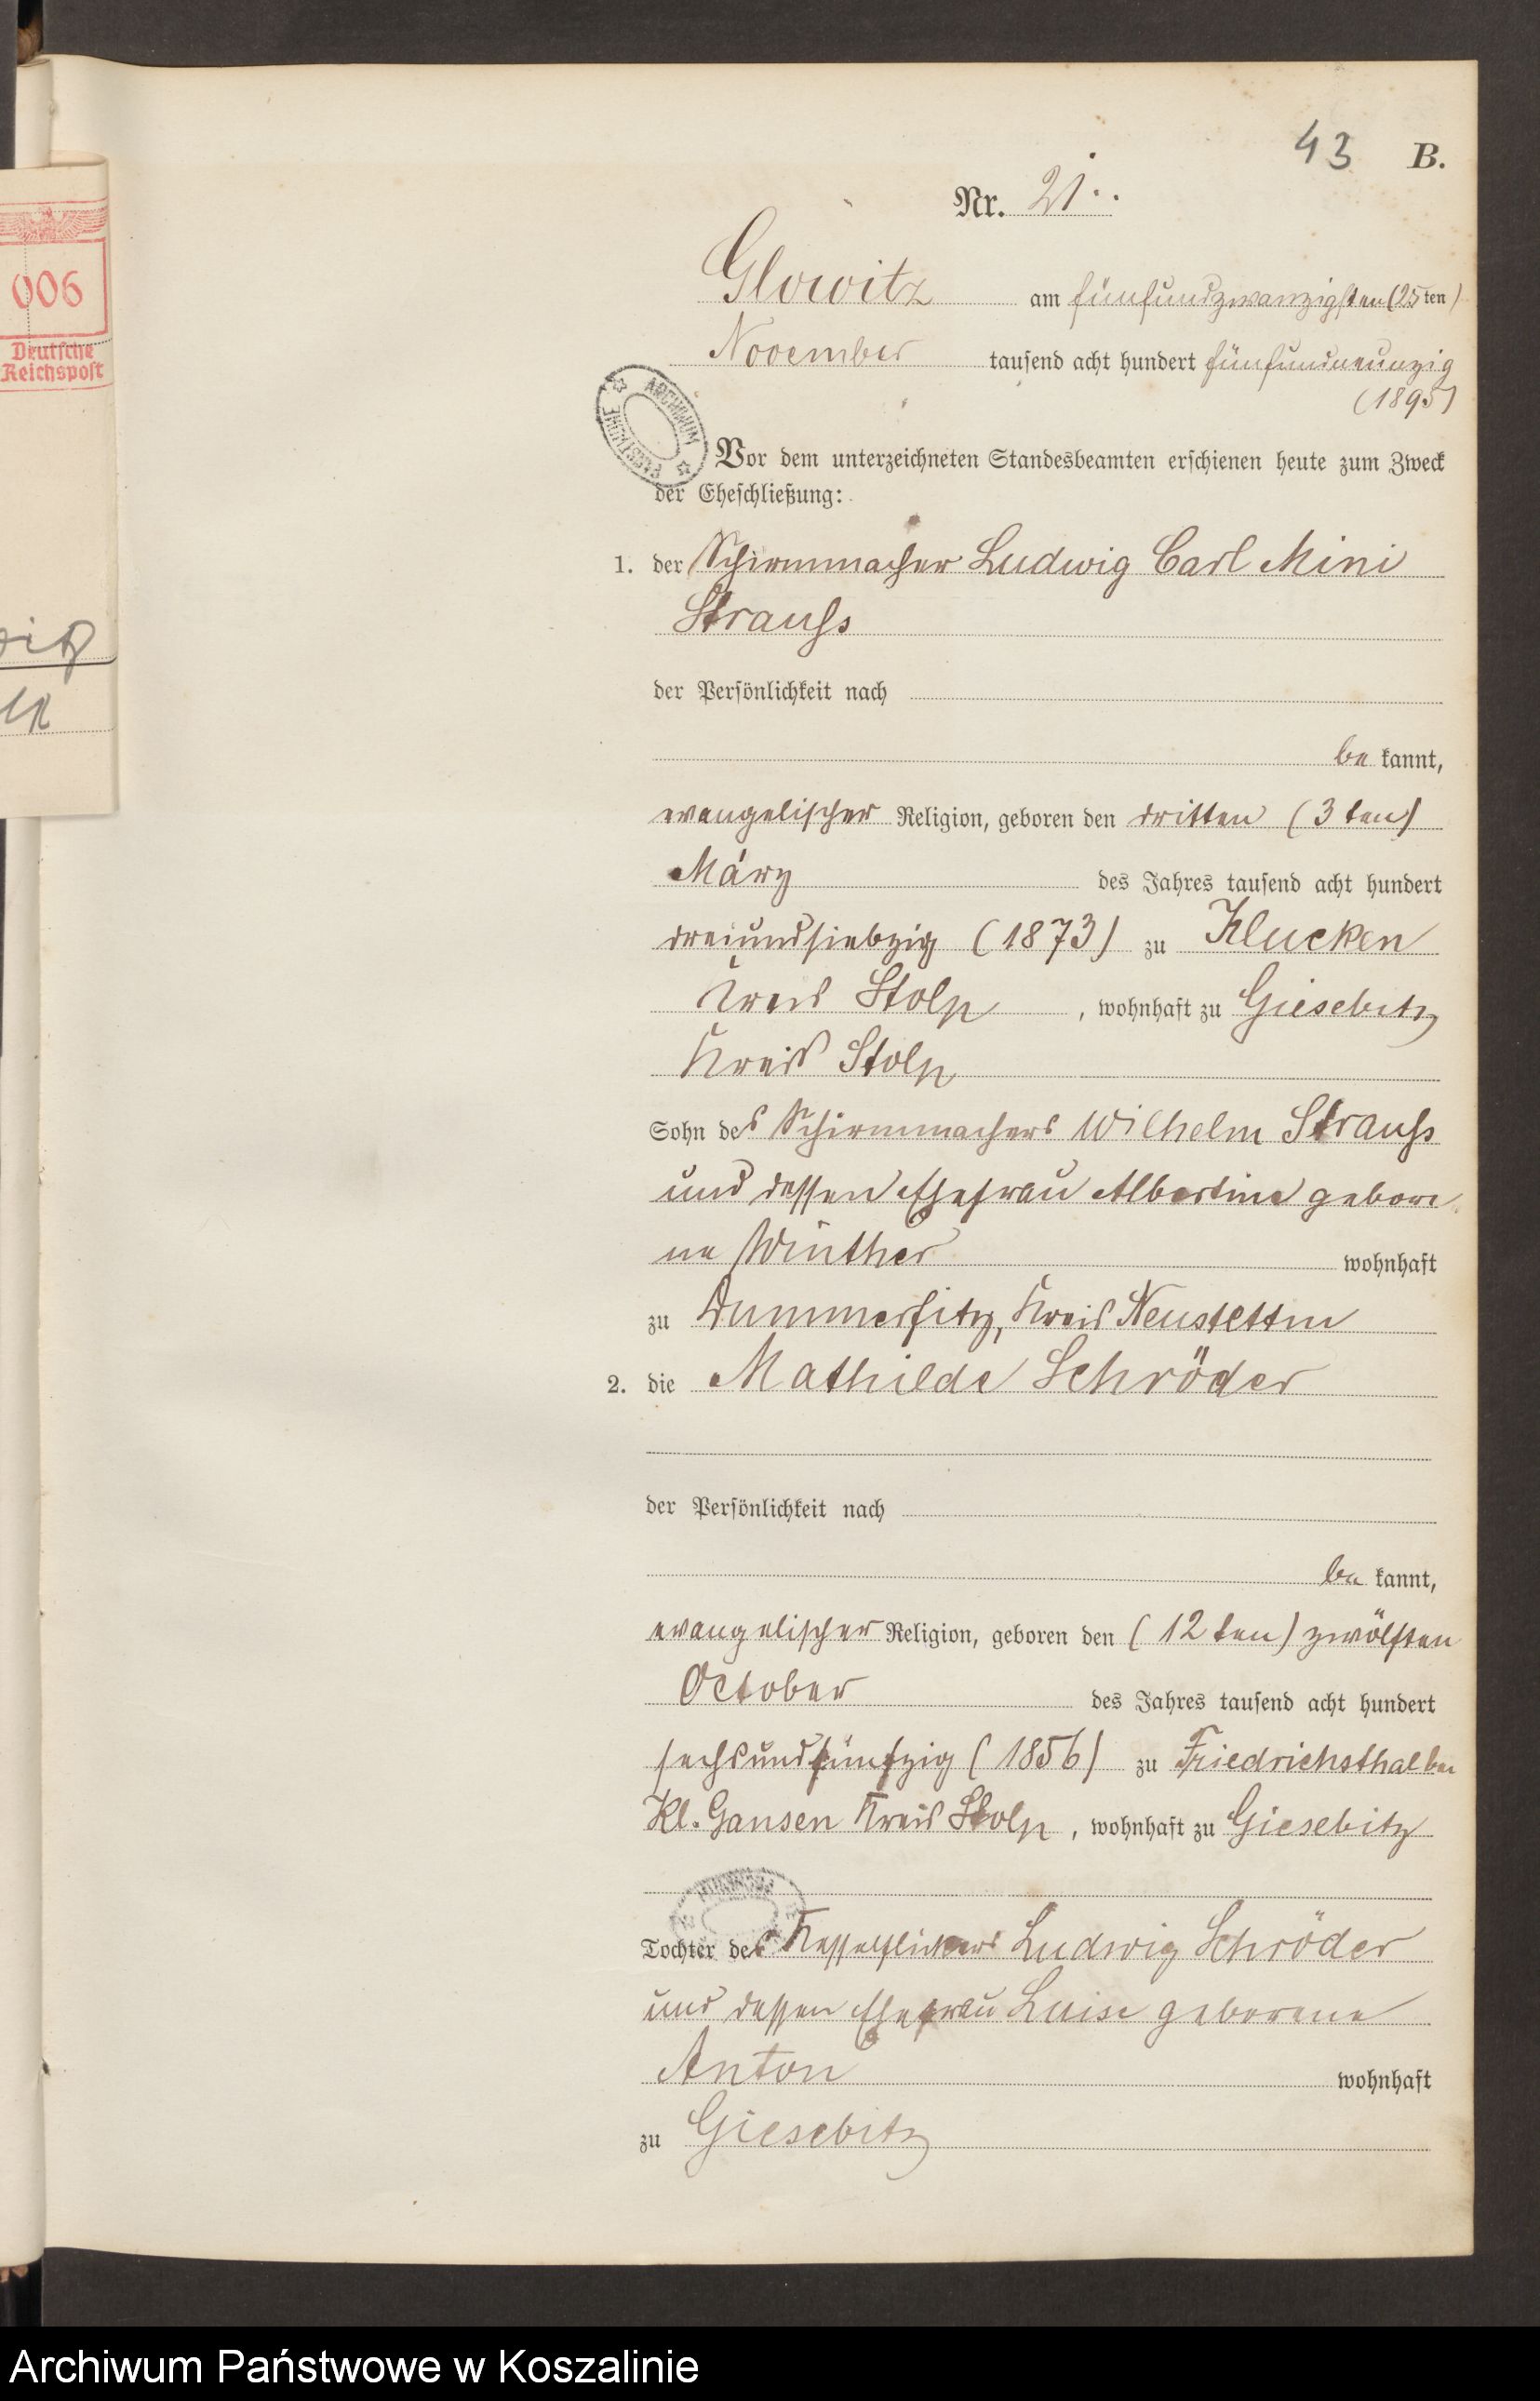 43 B.
Nr. 21.
Glowitz am fünfundzwanzigsten (25ten)
November tausend acht hundert fünfundneunzig
(1895)
ARCHIWUM
006
Deutsche
Reichspost
Vor dem unterzeichneten Standesbeamten erschienen heute zum Zweck
der Eheschließung:
1. der Schirmmacher Ludwig Carl Mini
Strauss
der Persönlichkeit nach
be kannt,
evangelischer Religion, geboren den dritten (3ten)
März des Jahres tausend acht hundert
dreiundsiebzig (1873) zu Klucken
Kreis Stolp, wohnhaft zu Giesebitz
Kreis Stolp
Sohn des Schirmmachers Wilhelm Strauss
und dessen Ehefrau Albertine gebore
ne Winther wohnhaft
zu Dummerfitz, Kreis Neustettin
2. die Mathilde Schröder
der Persönlichkeit nach
be kannt,
evangelischer Religion, geboren den (12ten) zwölften
October des Jahres tausend acht hundert
sechsundfünfzig (1856) zu Friedrichsthal bei
Kl. Gansen Kreis Stolp, wohnhaft zu Giesebitz
Tochter des Kesselflickers Ludwig Schröder
und dessen Ehefrau Luise geborene
Anton wohnhaft
zu Giesebitz
Archiwum Państwowe w Koszalinie